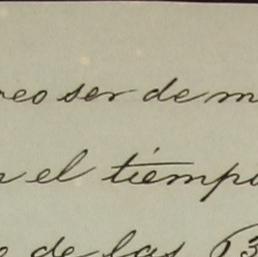 reo ser de m
n el tiempo
o de las 63